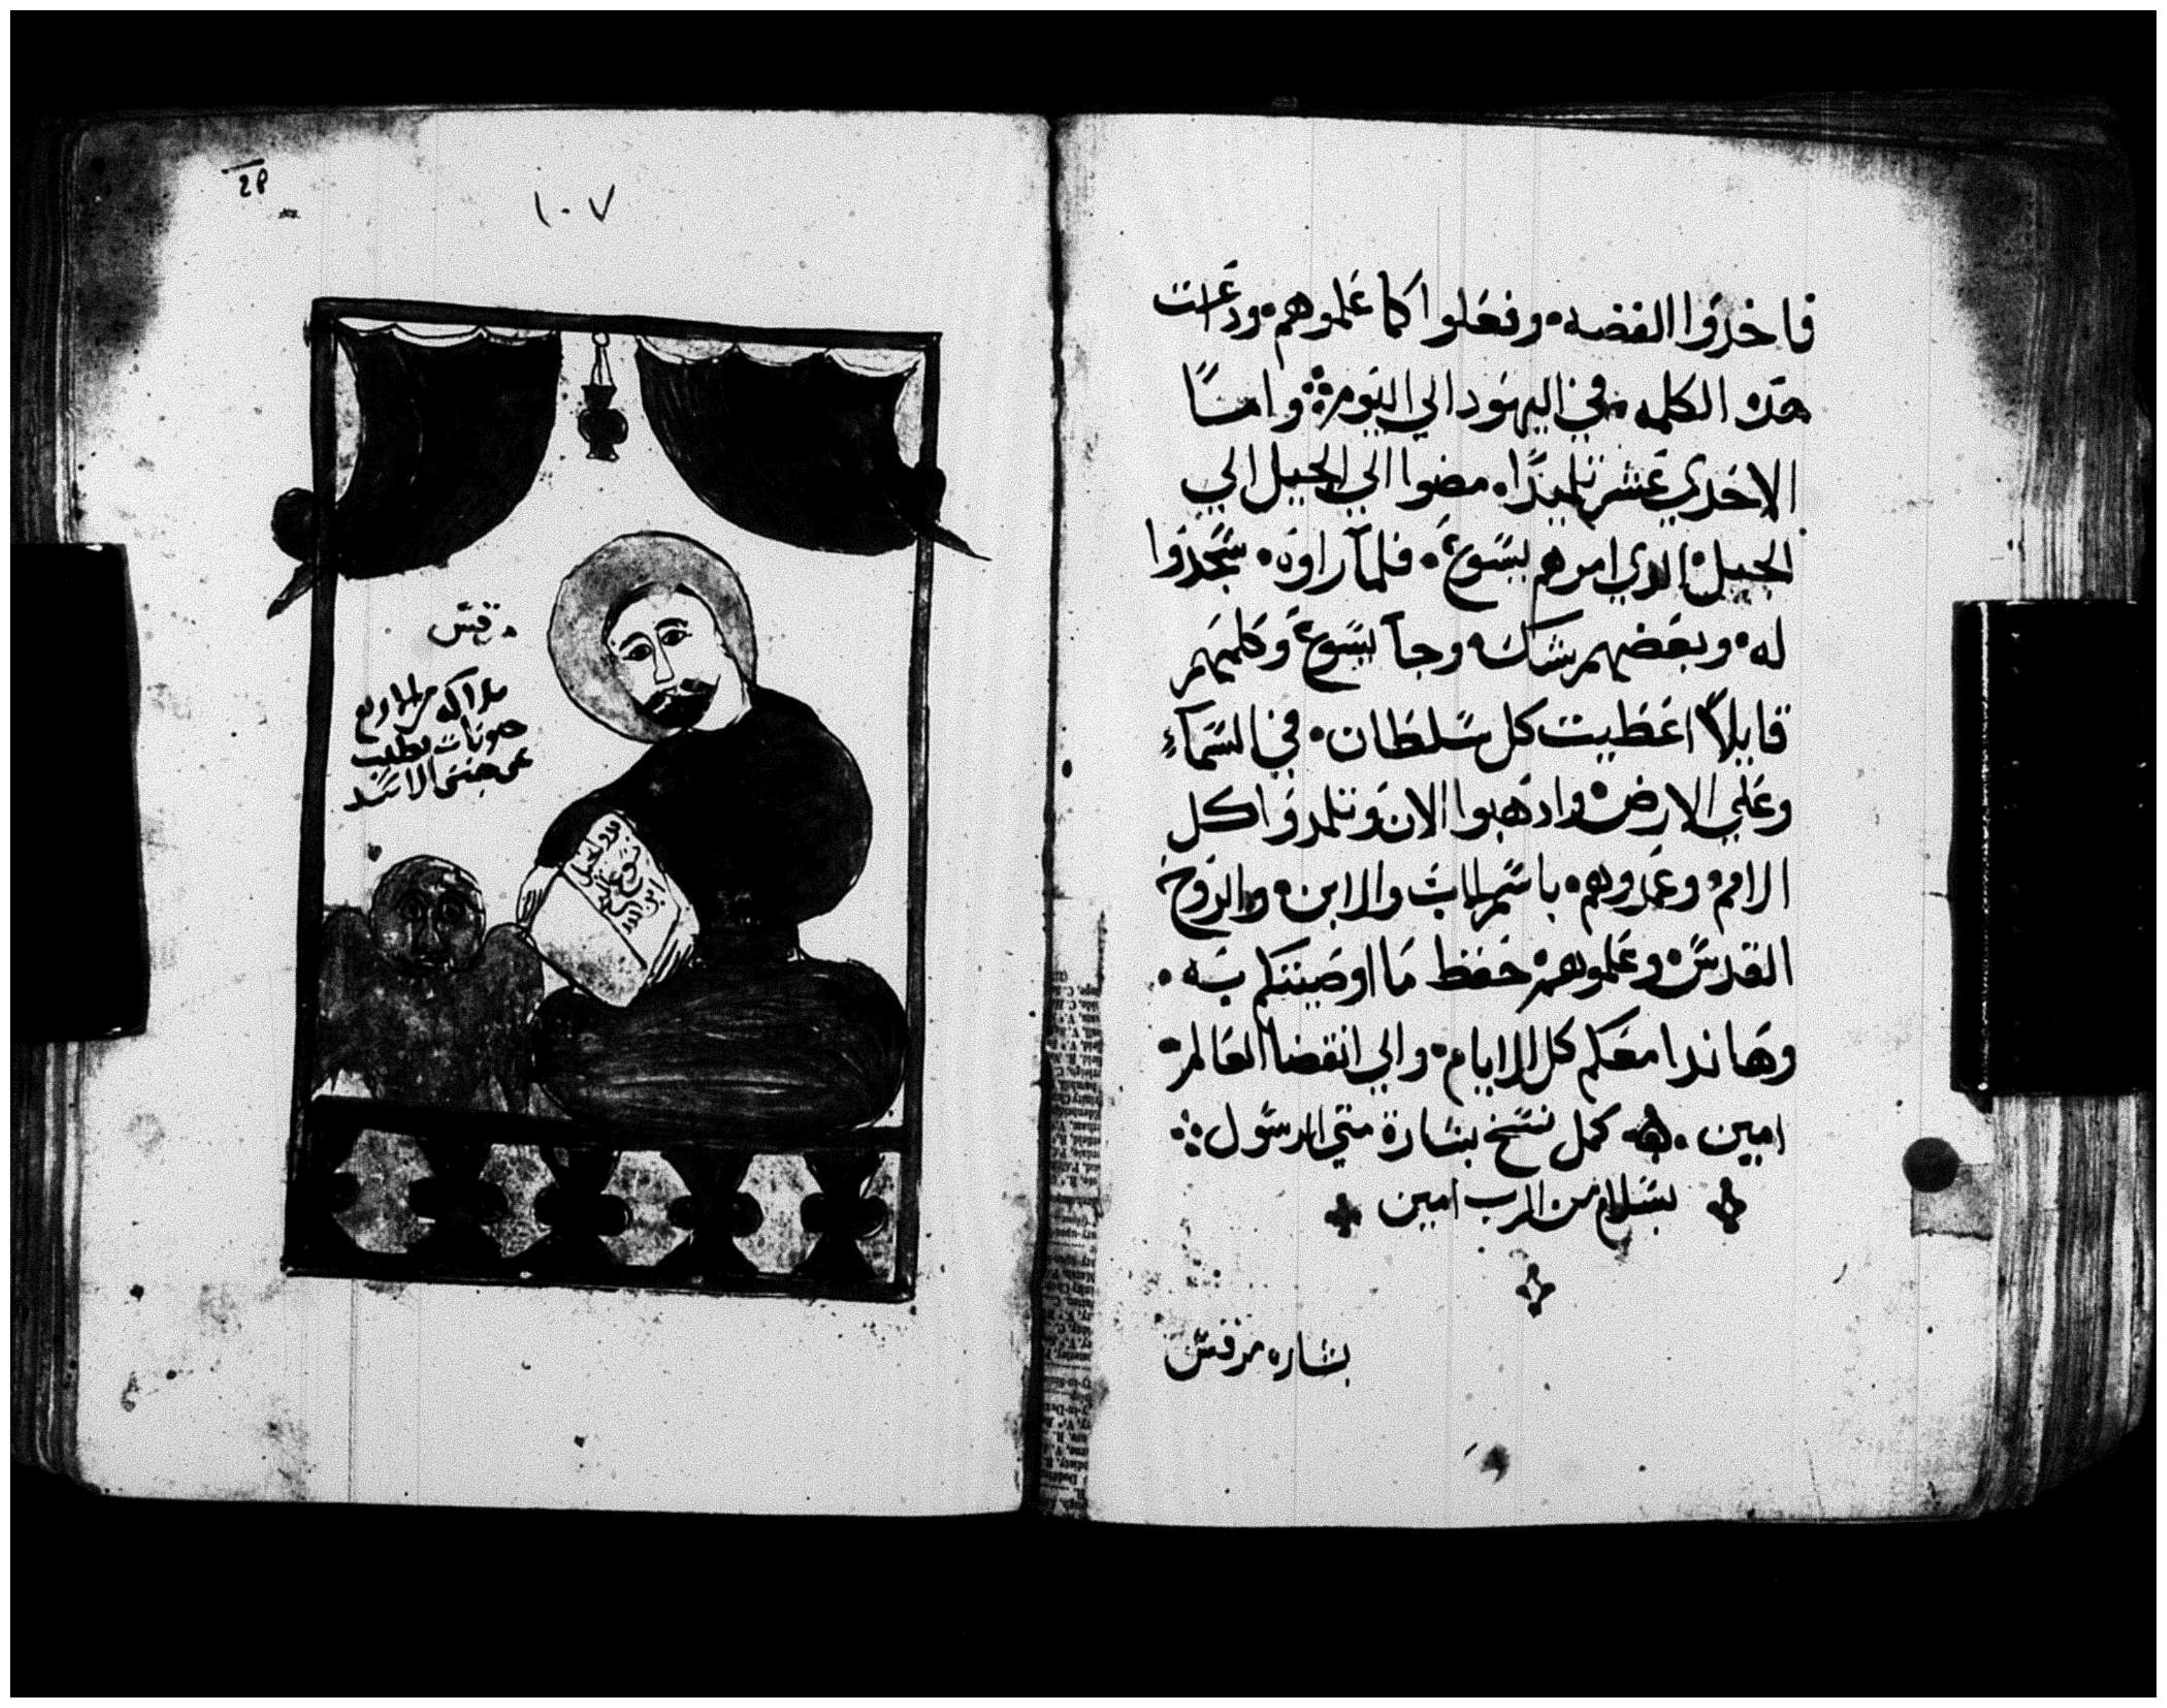 فاخدوا الفضه وفعلوا كما علموهم ودعت
هده الكلمه في اليهود الي اليوم وامسا
الاحدي عشر تلميدًا مضوا الي الجبل الي
الجبل الدي امرهم يسوع فلما راوه سجدوا
له وبعضهم شك وجا يسوع وكلمهم
قايلاً اعطيت كل سلطان في السمآء
وعلي الارض وادهبوا الان وتلمدوا كل
الامم وعمدوهم باسم الاب والابن والروح
القدس وعلموهم حفظ ما اوصيتكم به
وها اندا معكم كل الايام والي انقضا العالم
امين كمل نسخ بشارة متي الرسول
بسلام من الرب امين
بشاره مرقس
28
١٠٧
مرقس
الاسد